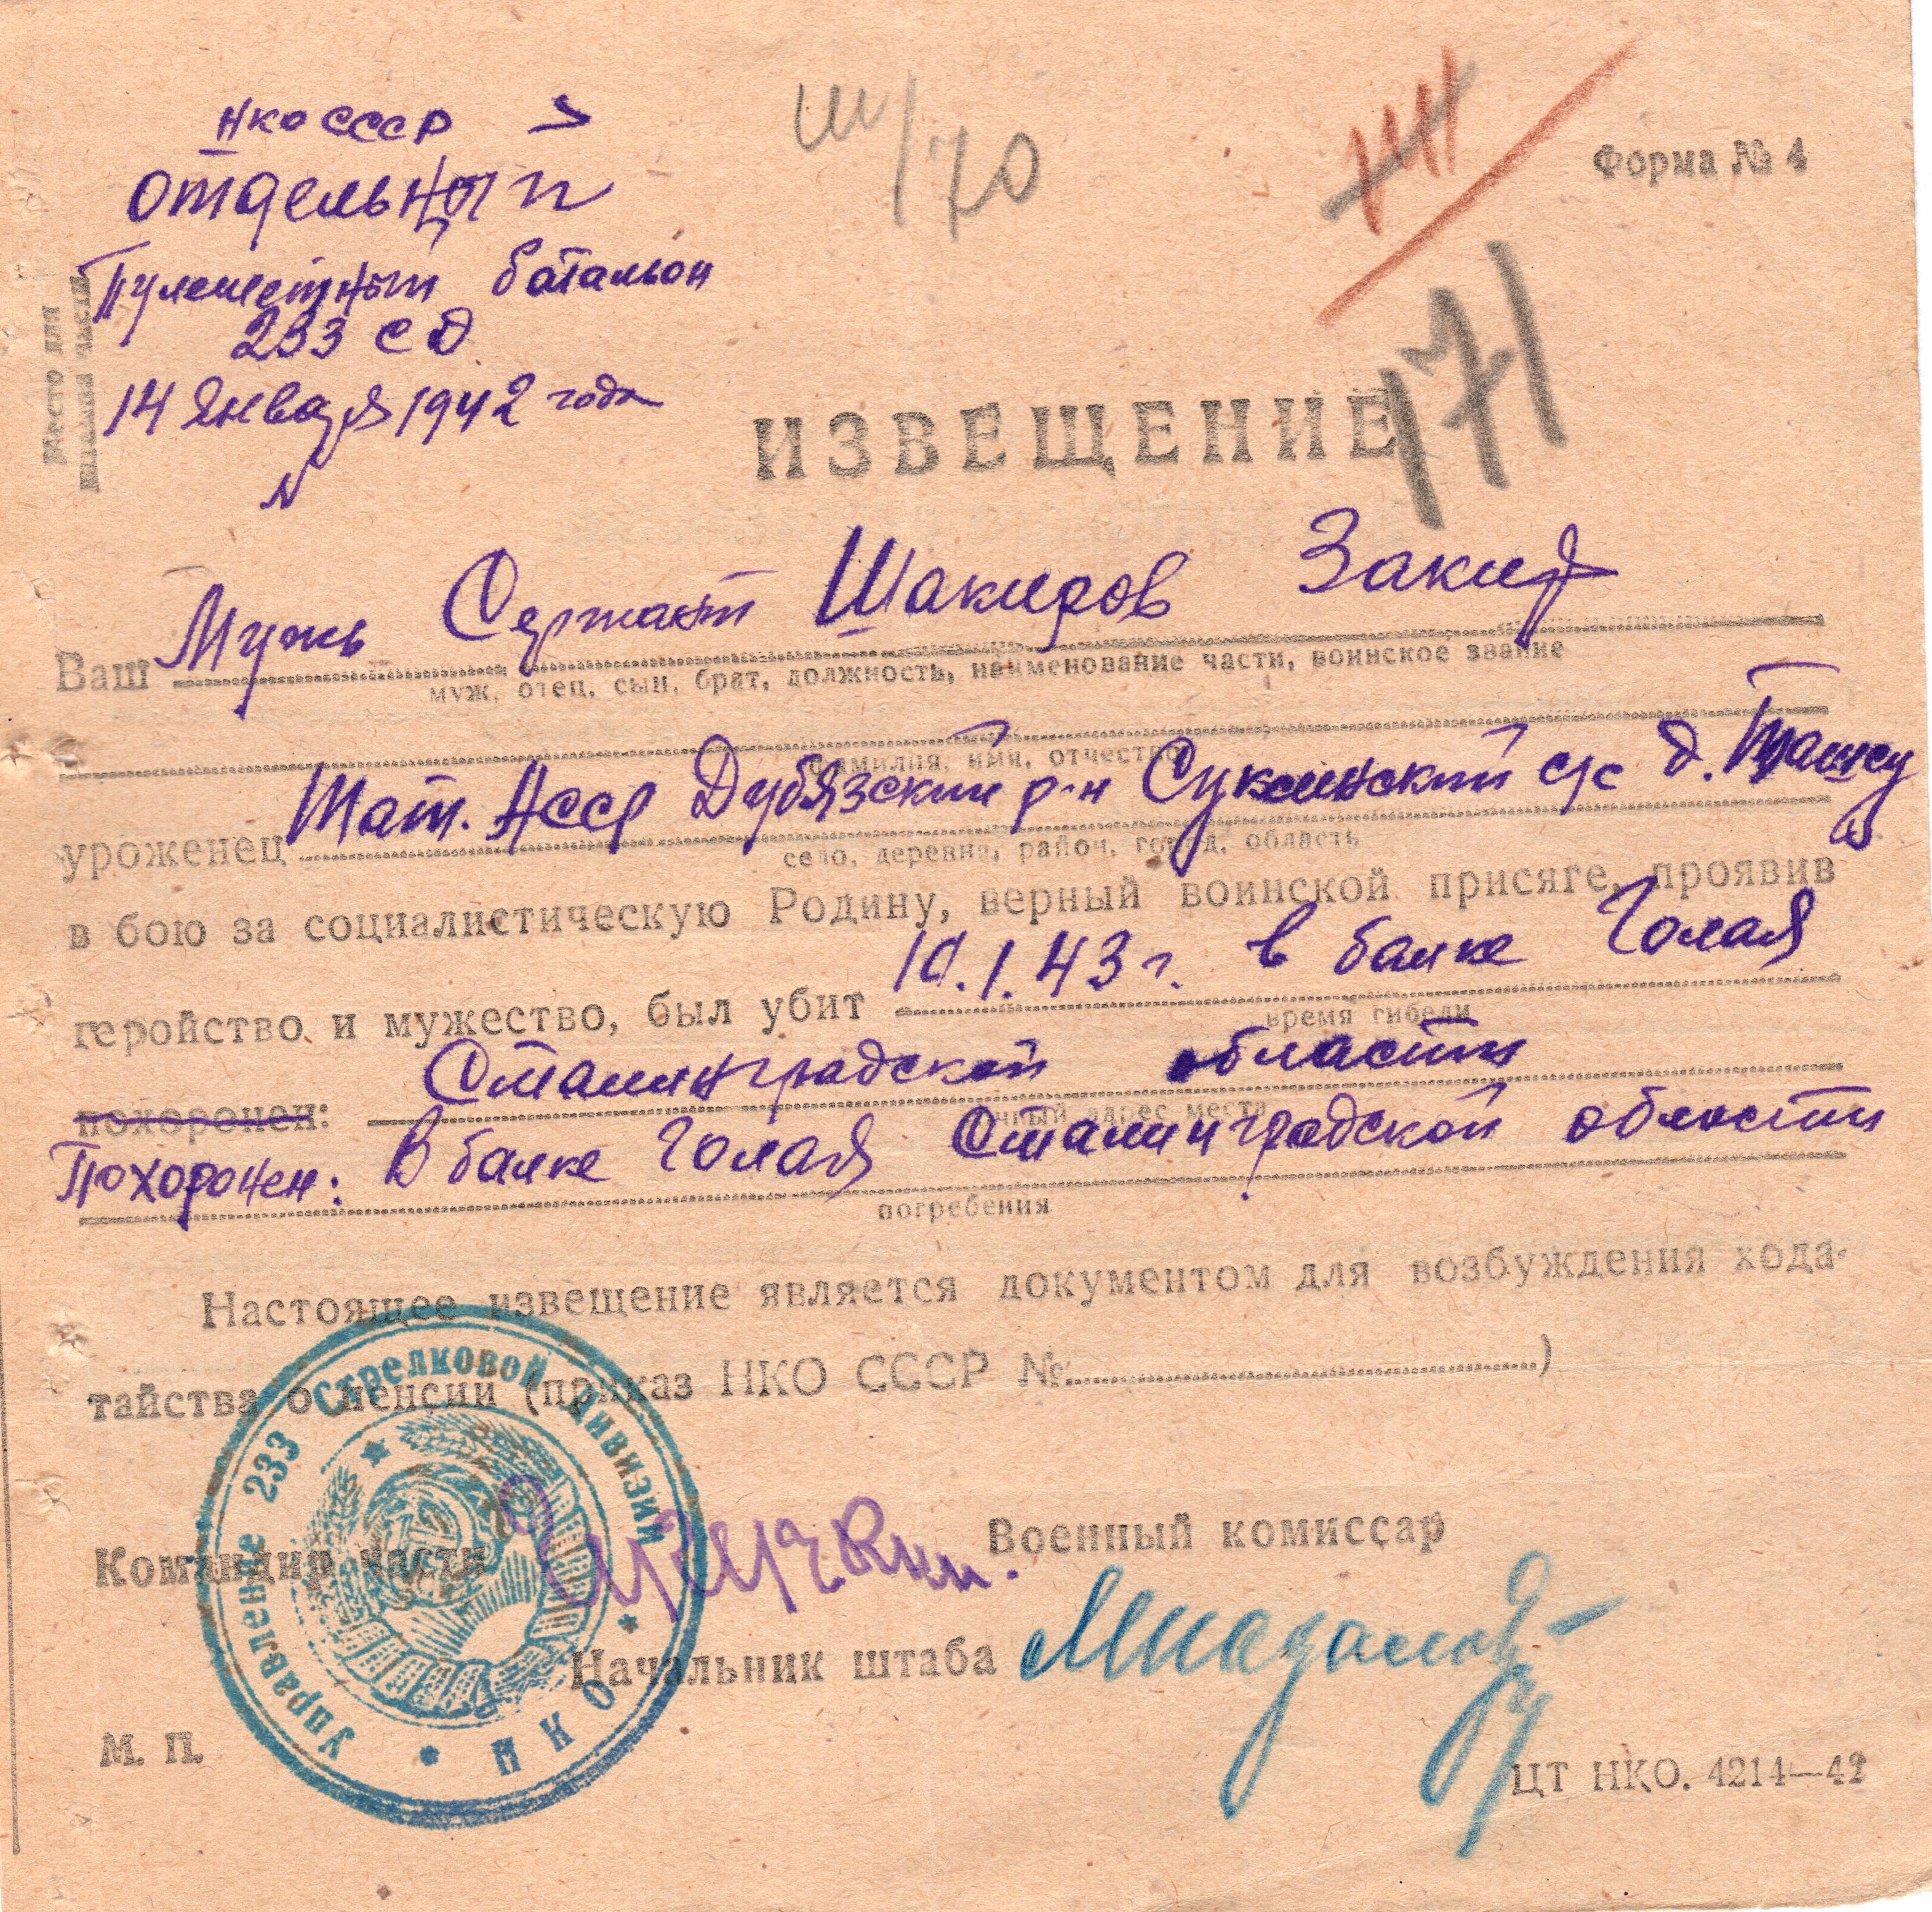 НКО СССР
отдельный
Пулеметный баталион
233 СД
14 Января 1942 года
N
Место для
штампа части
Ш/70
Форма № 4
171
ИЗВЕЩЕНИЕ
Ваш Мужь Сержант Шакиров Закир
муж, отец, сын, брат, должность, наименование части, воинское звание
фамилия, имя, отчество
уроженец Тат. АССР Дубязский р-н Суксинский с/с д. Ташсу
село, деревня, район, город, область
в бою за социалистическую Родину, верный воинской присяге, проявив
геройство и мужество, был убит 10.1.43 г. в балке Голая
время гибели
похоронен: Сталинградской области
адрес места
Похоронен: В балке Голая Сталинградской области
погребения
Настоящее извещение является документом для возбуждения хода-
тайства о пенсии (приказ НКО СССР № )
Управление 233 Стрелковой дивизии
НКО
Командир части
Военный комиссар
Начальник штаба
М. П.
ЦТ НКО. 4214—42